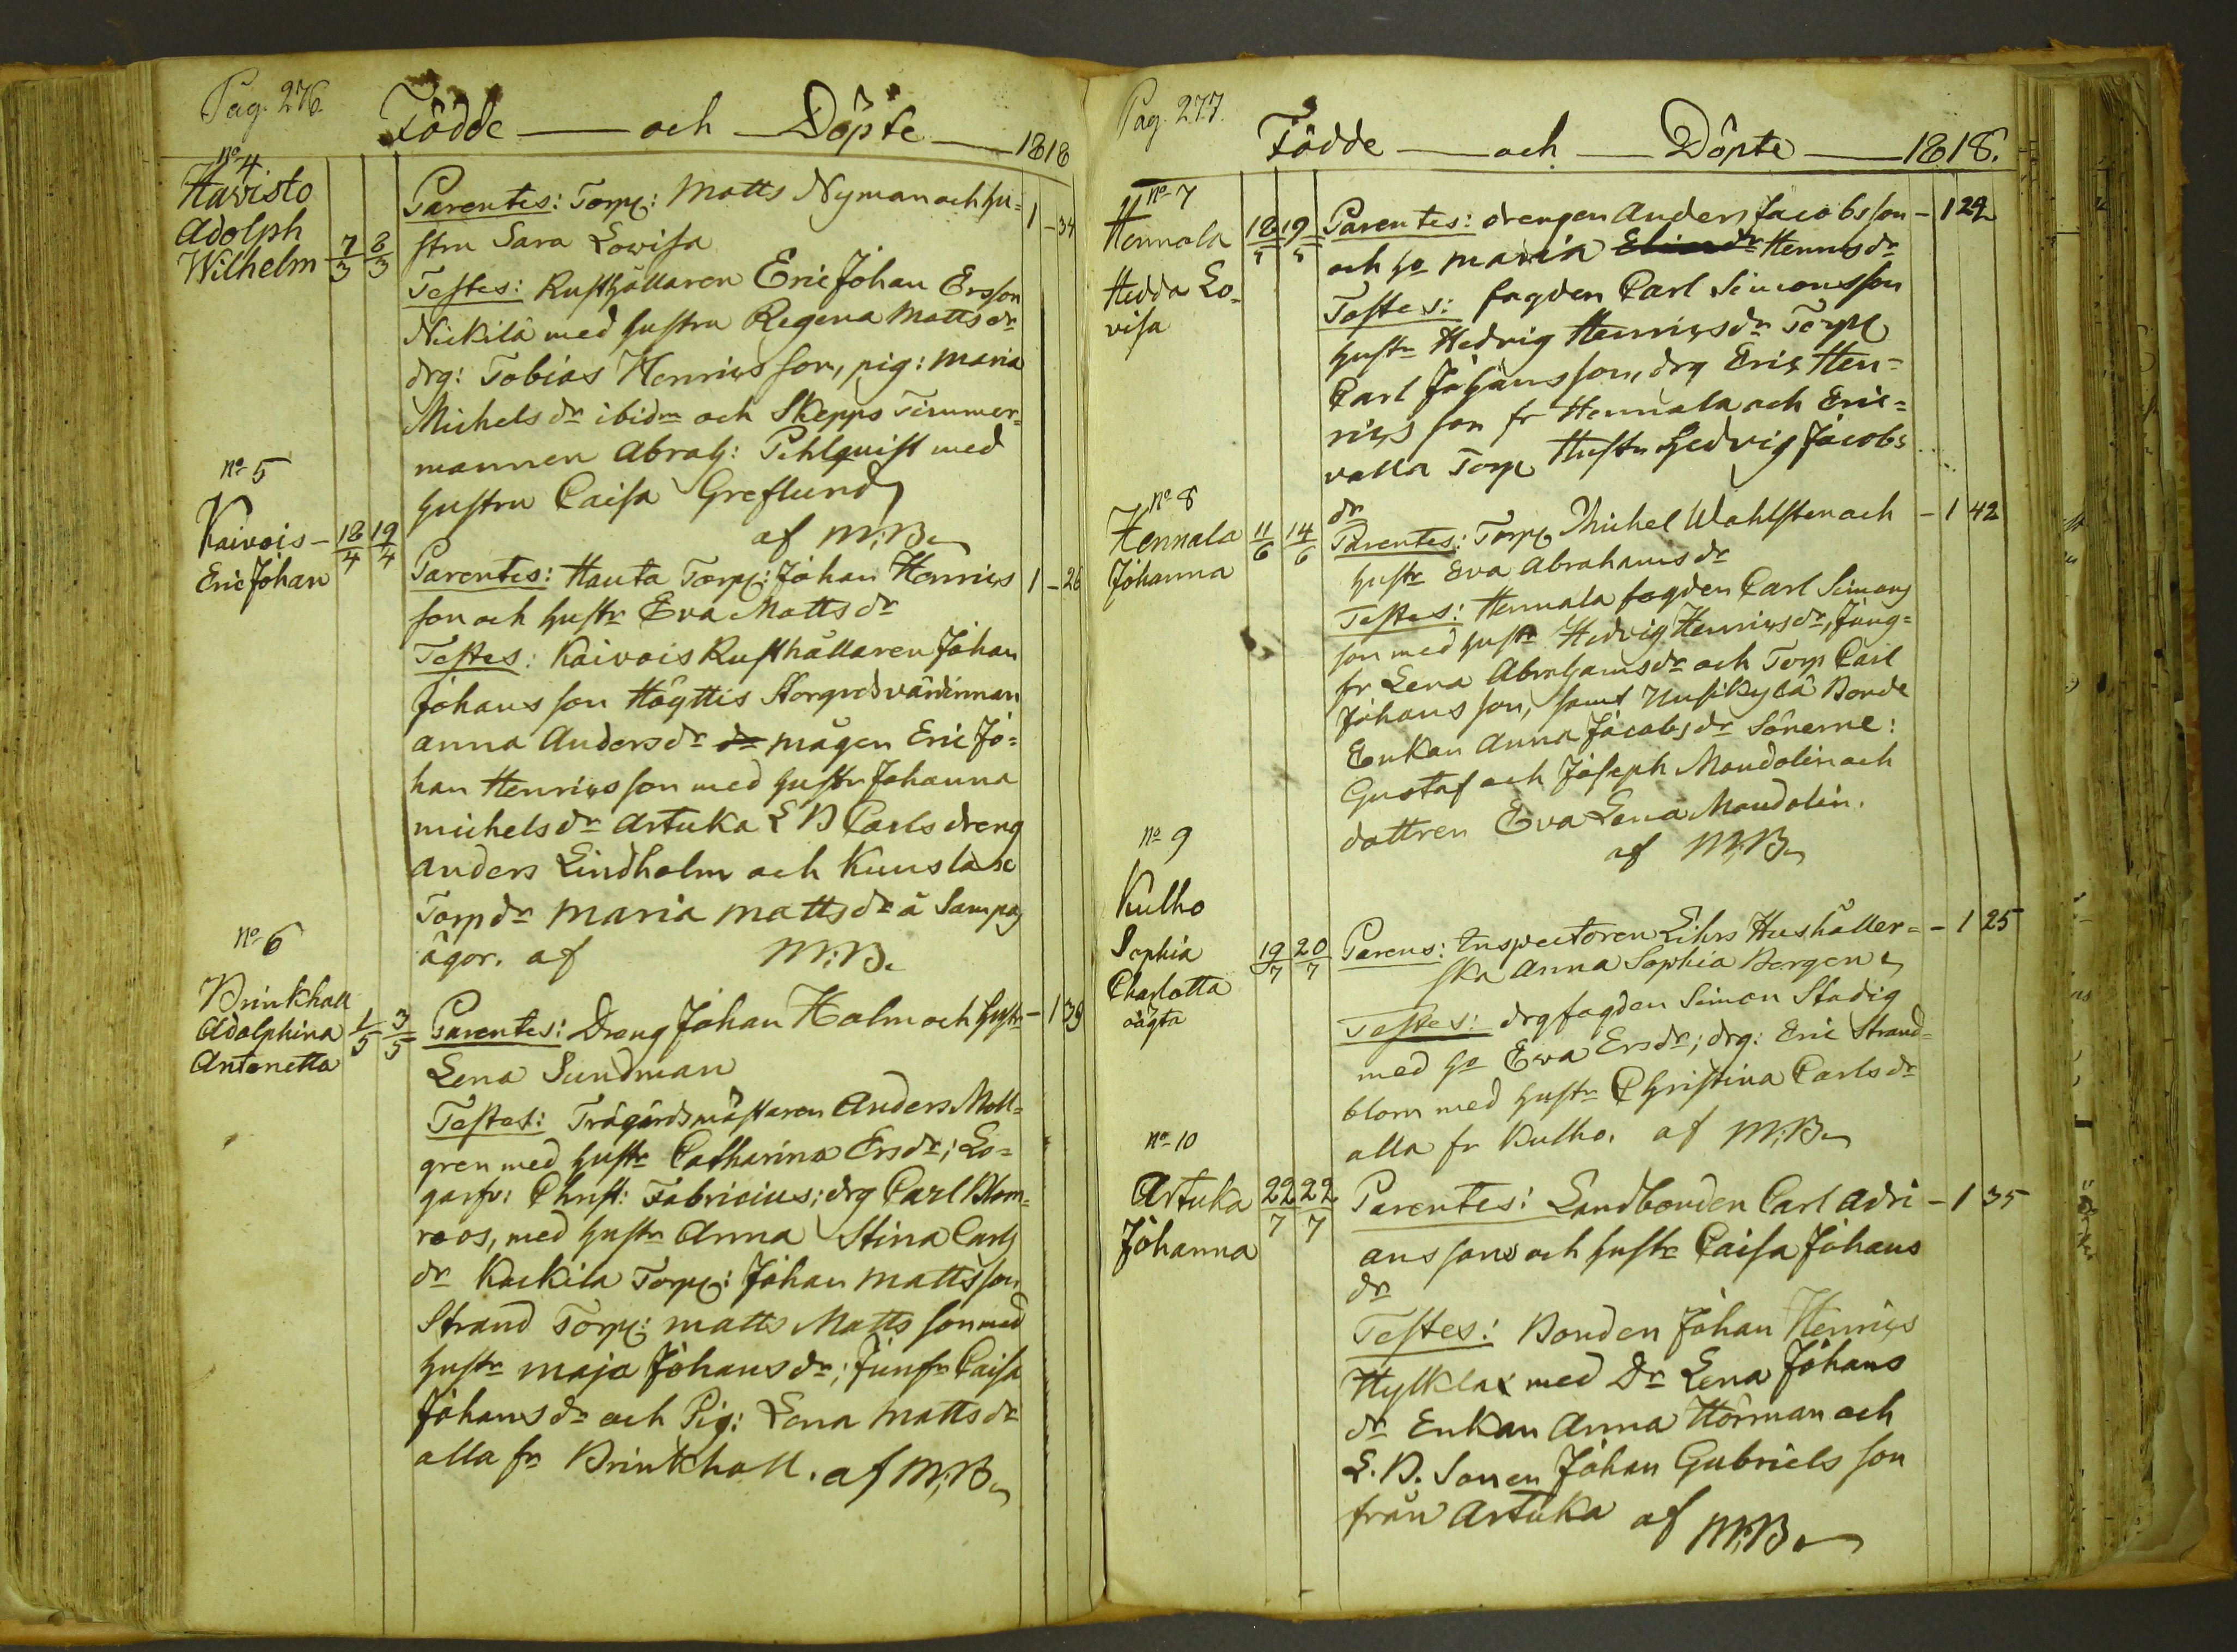 Pag. 276.
Födde — och — Döpte — 1818
No 4
Havisto
Adolph
Wilhelm 7/3 8/3
Parentes: Torp: Matts Nyman och hu= 1 - 34
stru Sara Lovisa
Testes: Rusthållaren Eric Johan Ersson
Nickilä med hustru Regena Matts dr
drg: Tobias Henrics son, pig: Maria
Michels dr ibidm och Skepps Timmer=
mannen Abrah: Pihlquist med
hustru Caisa Greflund
af M:B.
No 5
Kaivois - 18/4 19/4
Eric Johan
Parentes: Hauta Torp: Johan Henrics 1 - 26
son och hustr Eva Matts dr
Testes: Kaivois Rusthållaren Johan
Johans son Högttis Storgårdsvärdinnan
Anna Anders dr mågen Eric Jo=
han Henrics son med hustr Johanna
Michels dr Artuka L B Carls dreng
Anders Lindholm och Kuusla
Torp dr Maria Matts dr å Sampas
ägor. af M:B.
No 6
Brinkhall
Adolphina 1/5 3/5
Antonetta
Parentes: Dreng Johan Holm och hustr - 1 39
Lena Sundman
Testes: Trägårdsmästaren Anders Moll=
gren med hustr Catharina Ers dr; Lo=
garfv: Christ: Fabricius; drg Carl Blom=
roos, med hustr Anna Stina Carls
dr Kackila Torp: Johan Matts son
Strand Torp: Matts Matts son med
hustr Maja Johans dr; Junfr Caisa
Johans dr och Pig: Lena Matts dr
alla fr Brinkhall. af M:B.
Pag. 277.
Födde — och — Döpte — 1818.
No 7
Hennala 18/5 19/5
Hedda Lo=
visa
Parentes: drengen Anders Jacobs son - 1 24
och ho Maria Henrics dr
Testes: fogden Carl Simons son
hustr Hedvig Henrics dr Torp
Carl Johans son, drg Eric Hen=
rics son fr Hennala och Eric=
valla Torp Hustr Hedvig Jacobs
dr
No 8
Hennala 11/6 14/6
Johanna
Parentes: Torp Michel Wahlsten och - 1 42
hustr Eva Abrahams dr
Testes: Hennala fogden Carl Simons
son med hustr Hedvig Henrics dr, Jung=
fr Lena Abrahams dr och Torp Carl
Johans son, samt Uusikylä Bonde
Enkan Anna Jacobs dr Sönerne:
Gustaf och Joseph Mandolin och
dottren Eva Lena Mandolin.
af M:B.
No 9
Kulho
Sophia 19/7 20/7
Charlotta
oägta
Parens: Inspectoren Lihrs Hushåller= - 1 25
ska Anna Sophia Bergen
Testes: drg fogden Simon Stadig
med ho Ewa Ers dr; drg: Eric Strand=
blom med hustr Christina Carls dr
alla fr Kulho. af M:B.
No 10
Artuka 22/7 22/7
Johanna
Parentes: Landbonden Carl Adri - 1 35
ans son och hustr Caisa Johans
dr
Testes: Bonden Johan Henrics
Hylklax med Dr Lena Johans
dr Enkan Anna Hörman och
L. B. Sonen Johan Gabriels son
från Artuka af M:B.